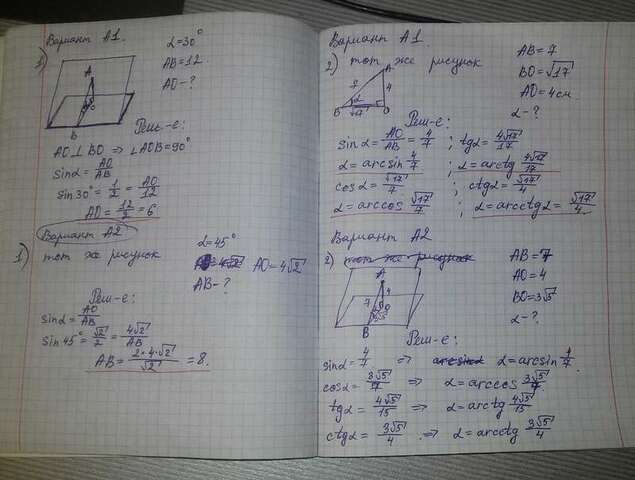 Вариант А1.
1)
α=30°
AB=12
AO-?
A
B
Реш-е:
AO⊥BO ⇒ ∠AOB=90°
sinα= AO/AB
sin30°= 1/2 = AO/12
AO= 12/2 =6
Вариант А2
1) тот же рисунок
α=45°
AO=4√2
AB-?
Реш-е:
sinα= AO/AB
sin45°= √2/2 = 4√2/AB
AB= 2×4√2/√2 =8.
Вариант А1
2) тот же рисунок
AB=7
BO=√17
AO=4см.
α-?
A
7
4
B
α
O
√17
Реш-е:
sinα= AO/AB = 4/7 ; tgα= 4√17/17
α=arcsin 4/7 ; α=arctg 4√17/17
cosα= √17/7 ; ctgα= √17/4
α=arccos √17/7 ; α=arcctgα= √17/4.
Вариант А2
2) тот же рисунок
AB=7
AO=4
BO=3√5
α-?
A
7
4
B
3√5
Реш-е:
sinα= 4/7 ⇒ arcsinα α=arcsin 4/7.
cosα= 3√5/7 ⇒ α=arccos 3√5/7
tgα= 4√5/15 ⇒ α=arctg 4√5/15
ctgα= 3√5/4 .⇒ α=arcctg 3√5/4